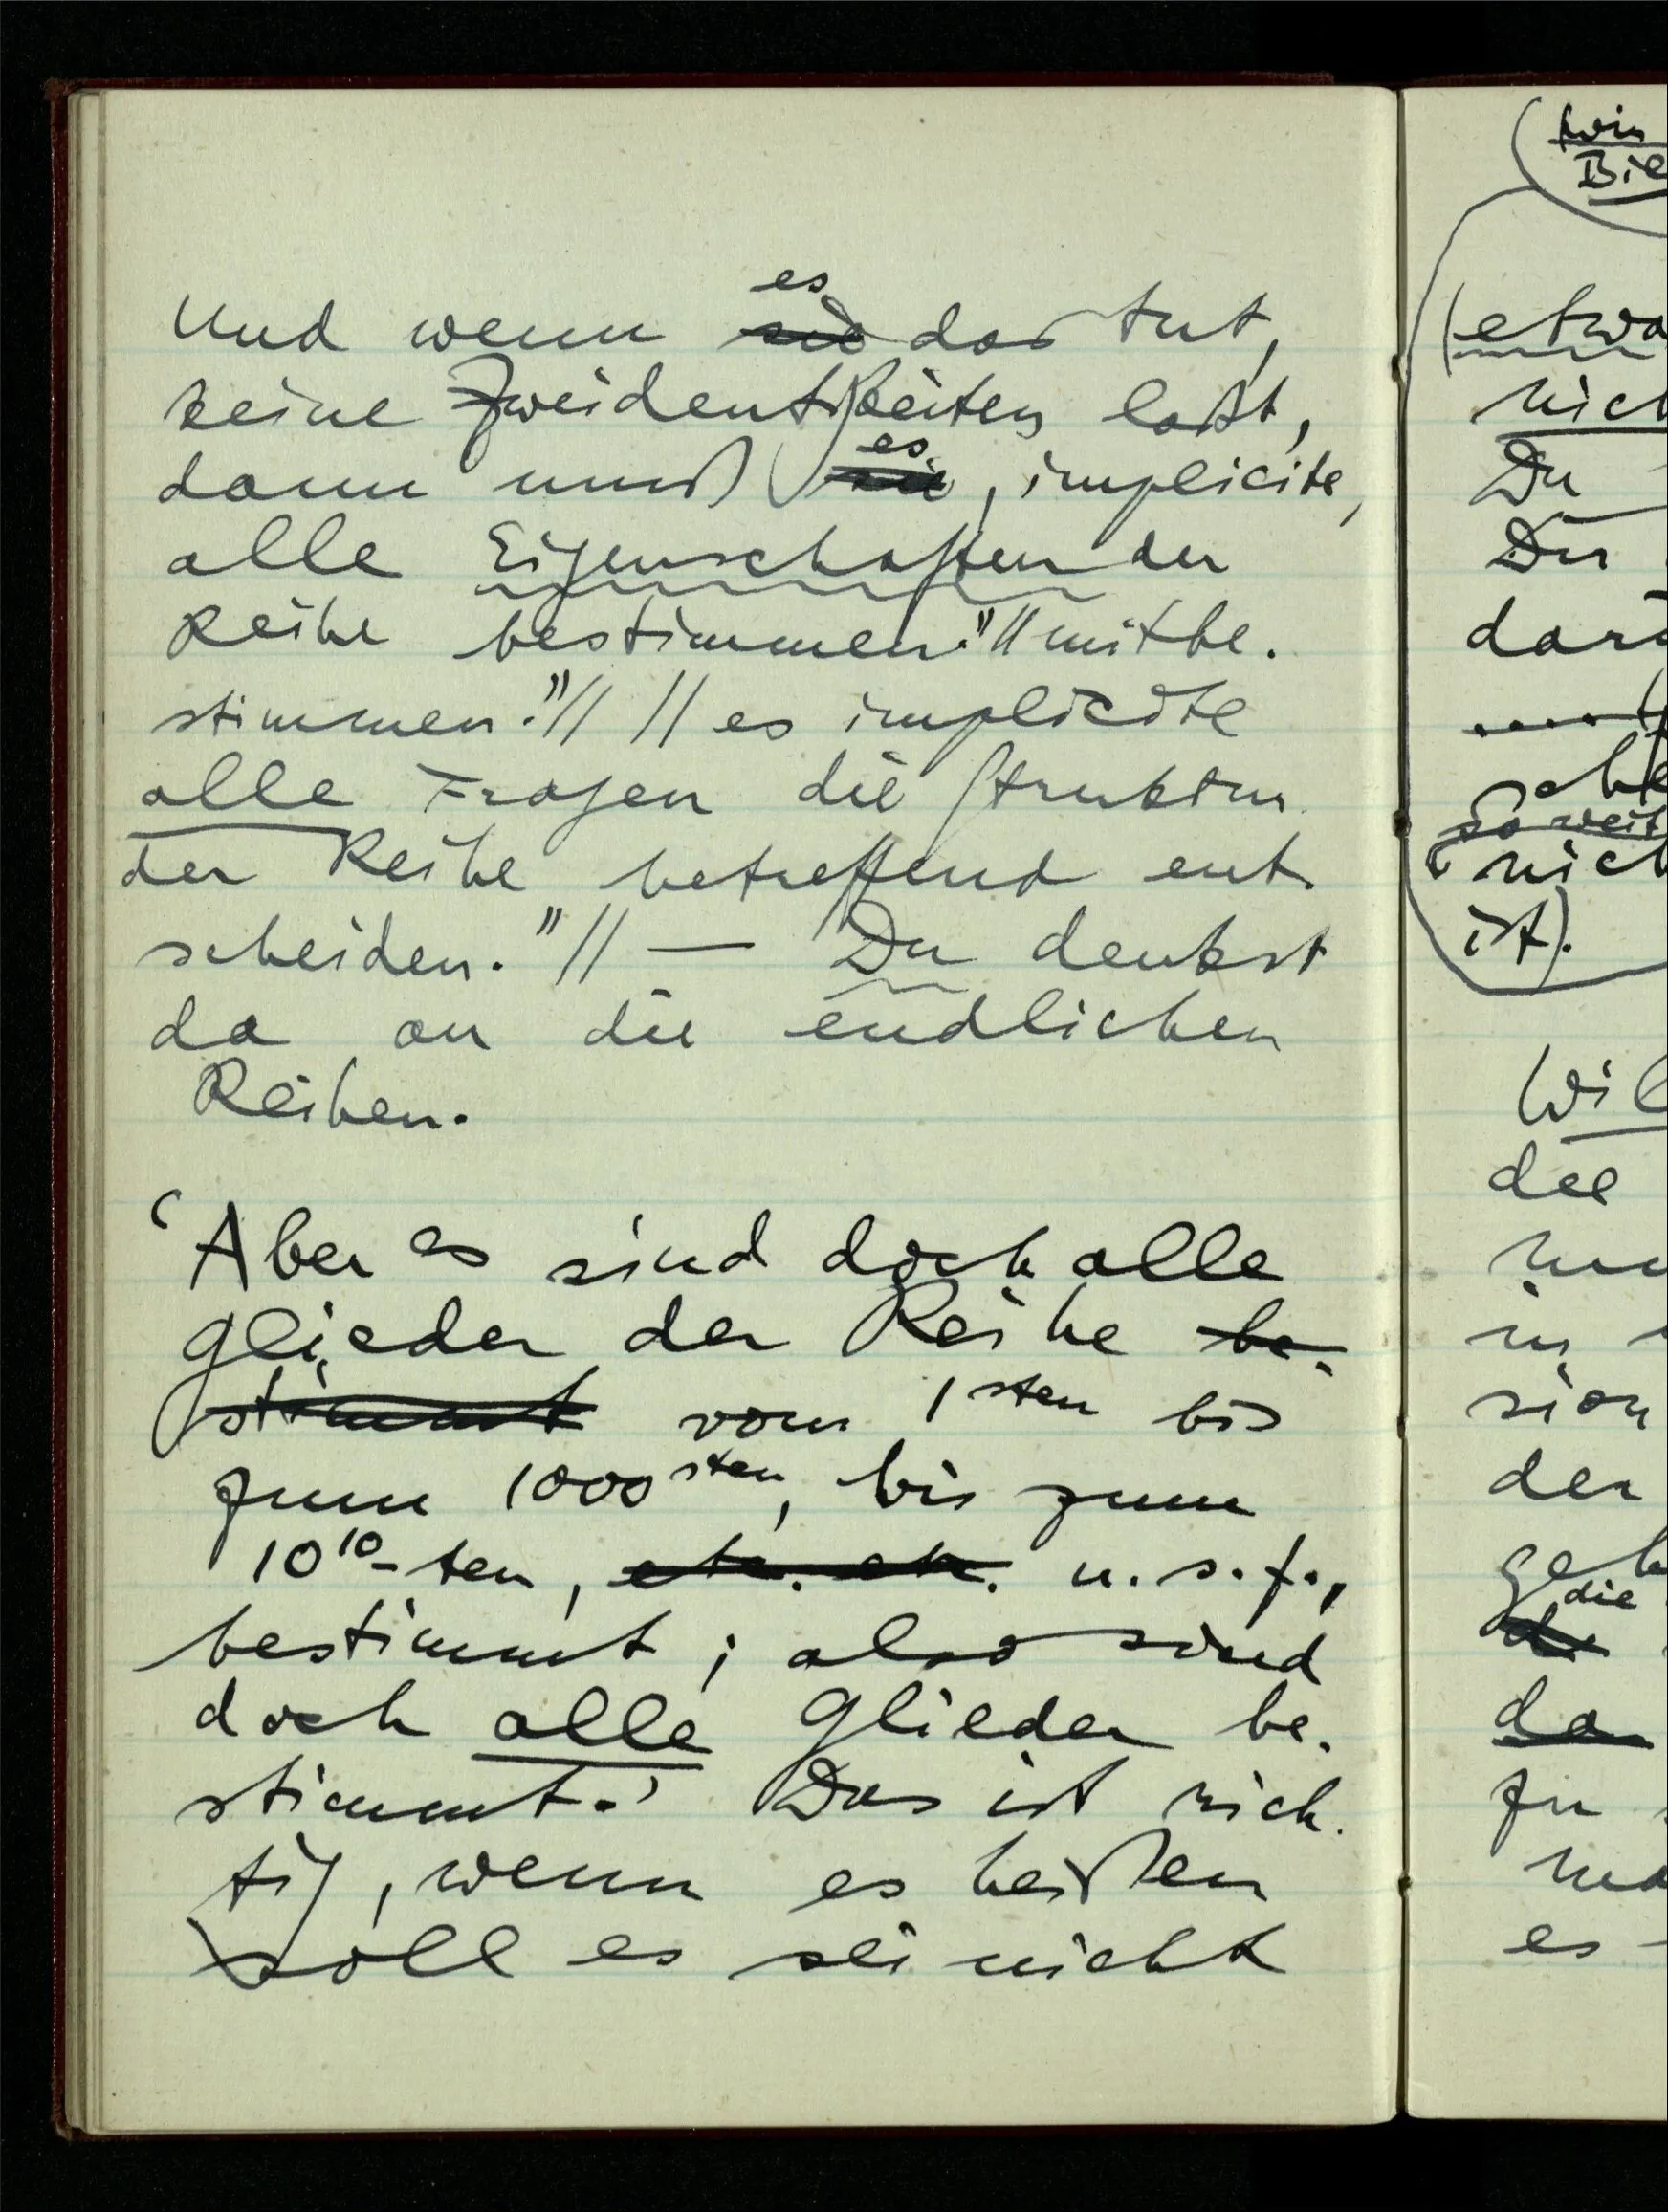 es
Und wenn sie das tut,
keine Zweideutigkeiten laßt,
es
dann muß sie, implicite,
alle Eigenschaften der
Reihe bestimmen." // mitbe-
stimmen." // // es implicite
alle Fragen die Struktur
der Reihe betreffend ent-
scheiden." // — Du denkst
da an die endlichen
Reihen.
'Aber es sind doch alle
Glieder der Reihe be-
stimmt vom 1sten bis
zum 1000sten, bis zum
10¹⁰-ten, etc. etc. u.s.f.,
bestimmt; also sind
doch alle Glieder be-
stimmt.' Das ist rich-
tig, wenn es heißen
soll es sei nicht
Bie
(etwa
nich
Du
Du
soweit
nich
ist).
Wil
die
in
sion
der
die
da
zu
es